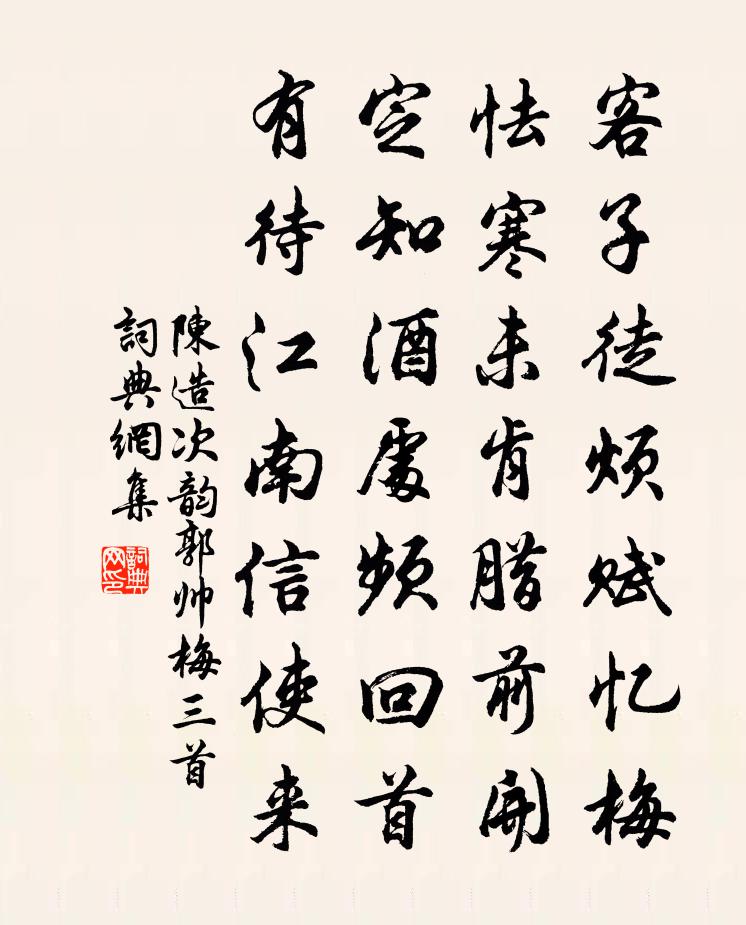 客子徒烦赋忆梅
怯寒未肯腊前開
定知酒處频回首
有待江南信使来
陳造次韵郭帅梅三首
詞典網集
詞典
网印